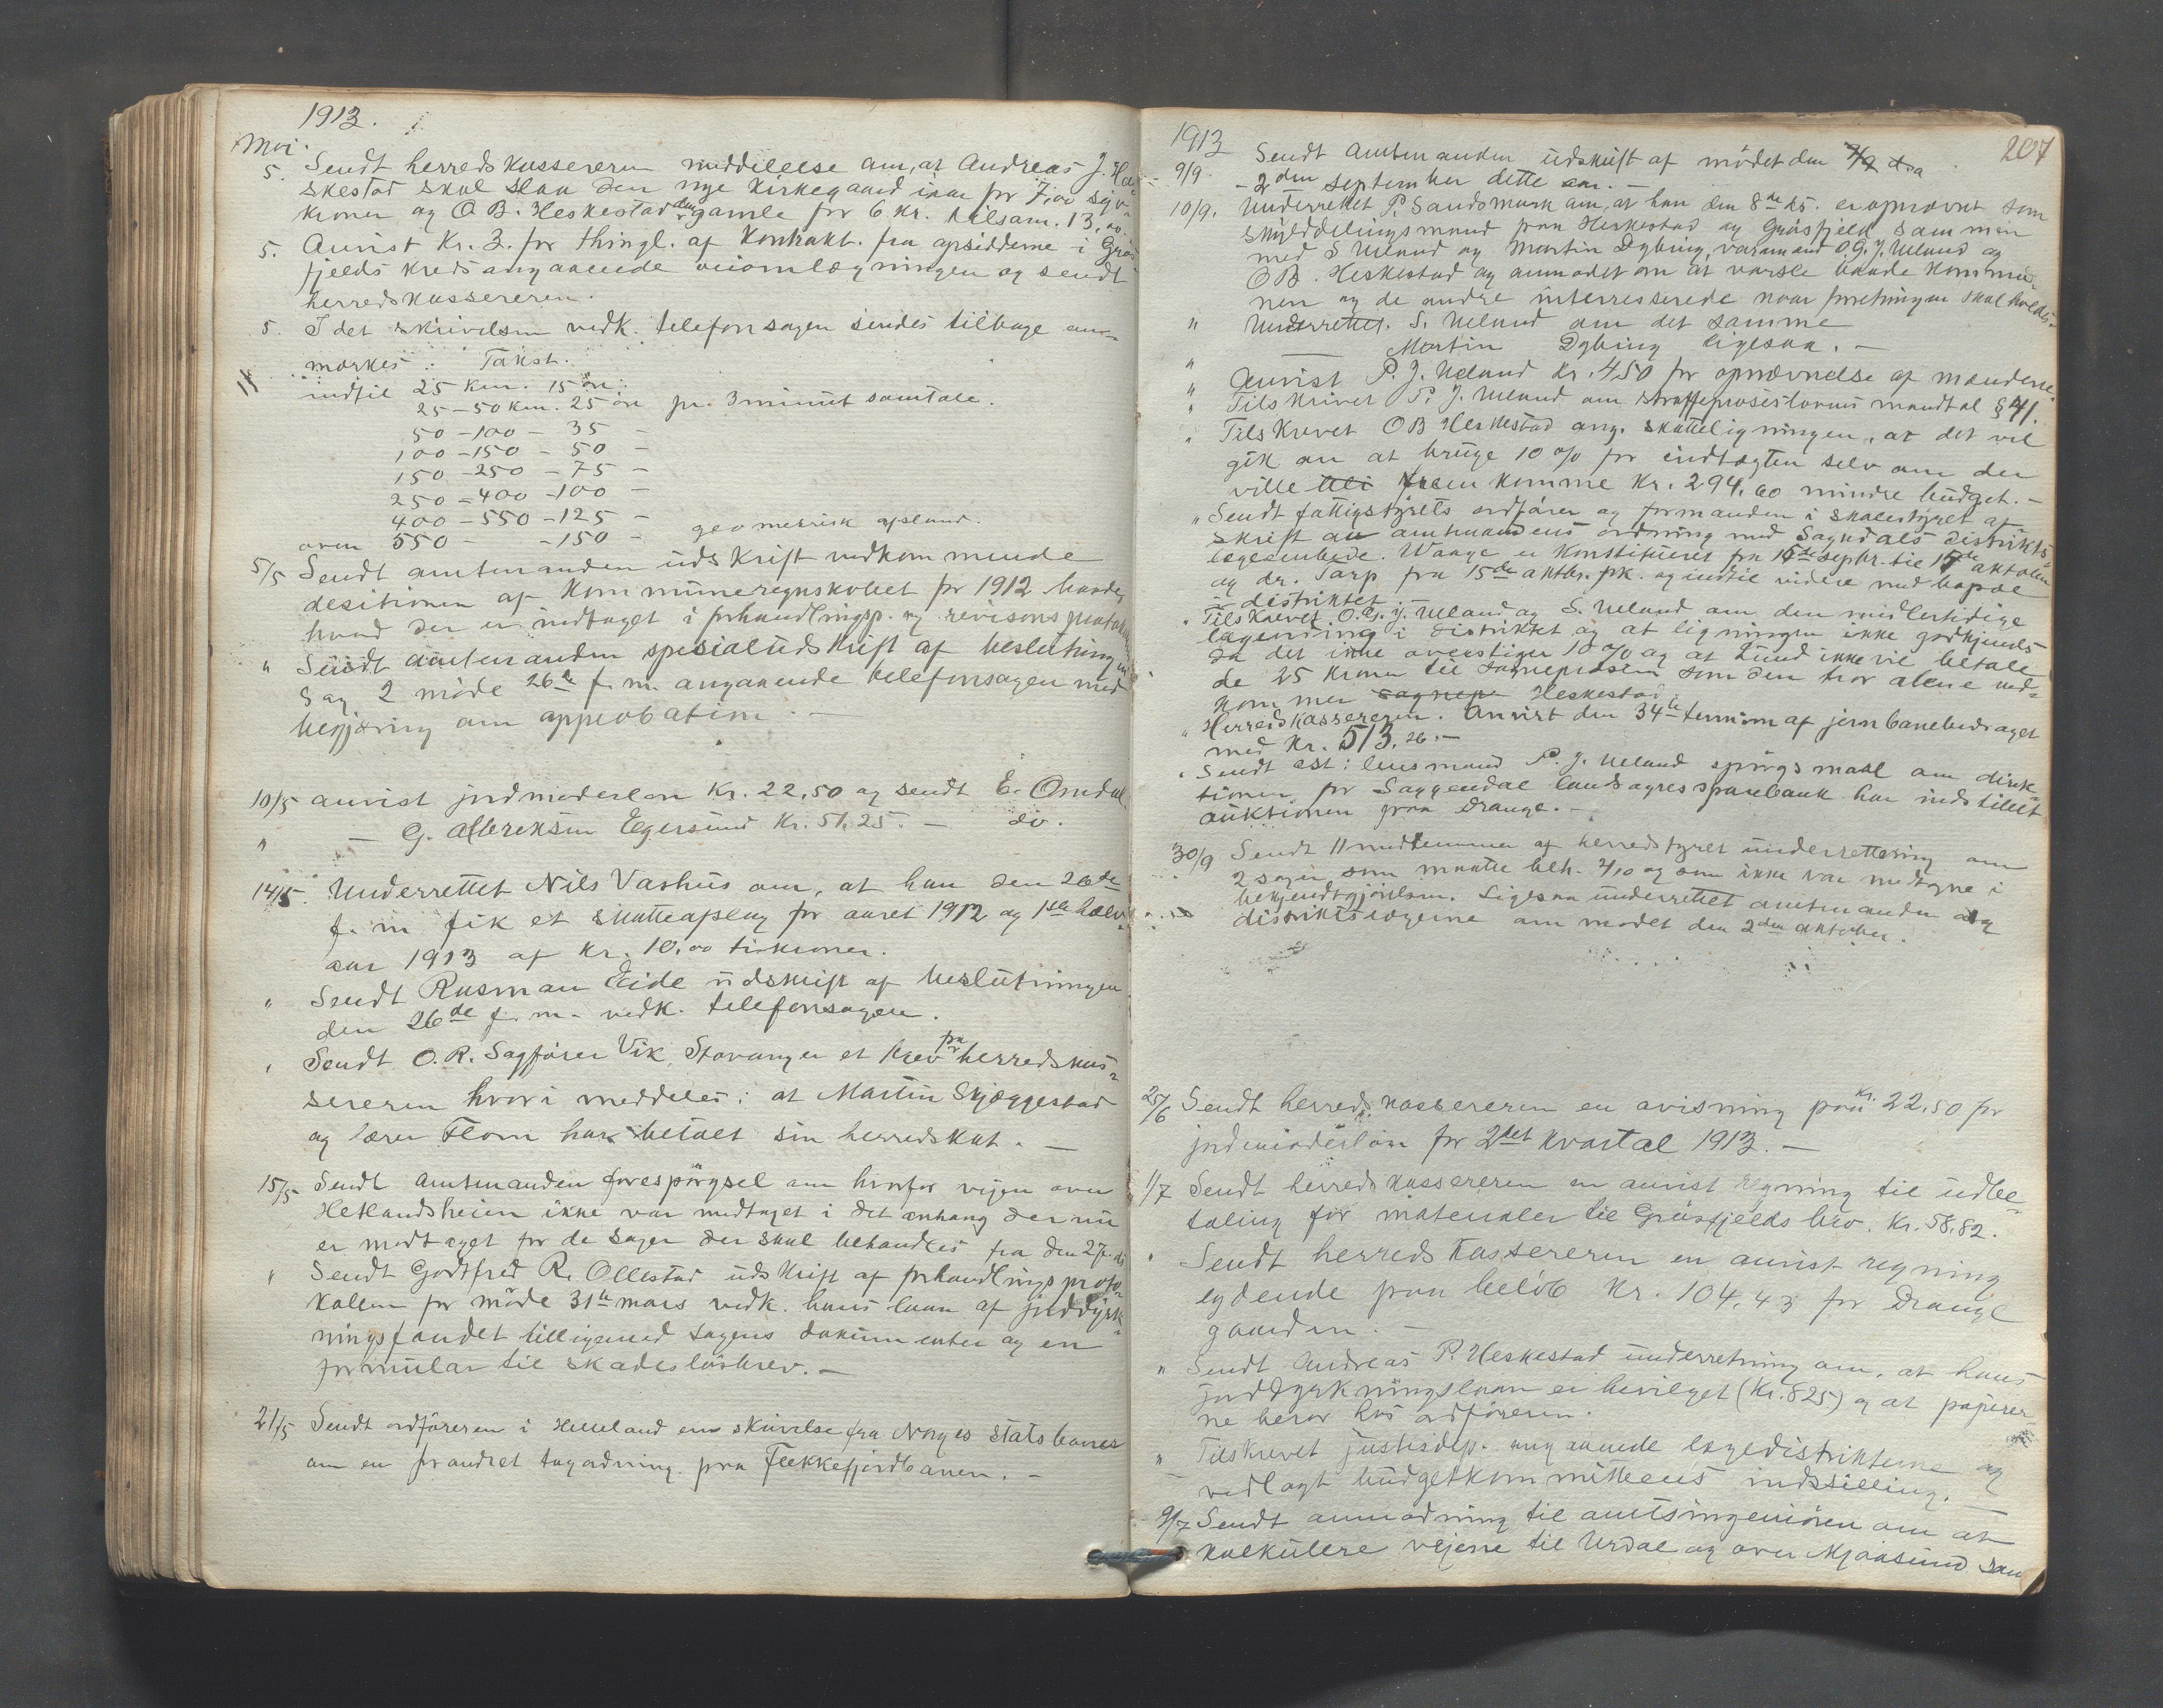 1913.
Mai.
5. Sendt herredskassereren meddelelse om, at Andreas J. He-
skestad skal slaa den nye kirkegaard iaar for 7,00 syv
kroner og O B. Heskestad den gamle for 6 kr. tilsam. 13,00.
5. Anvist Kr. 3. for thingl. af Kontrakt. fra opsidderne i Gräs-
fjelds kreds angaaende veiomlægningen og sendt
herredskassereren.
5. I det skrivelsen vedk. telefonsagen sendes tilbage an-
mærkes: Takst.
indtil 25 km. 15 öre
25 - 50 km. 25 öre pr. 3 minut samtale.
50 - 100 - 35 -
100 - 150 - 50 -
150 - 250 - 75 -
250 - 400 - 100 -
400 - 550 - 125 - geometrisk afstand.
over 550 - - 150 -
5/5 Sendt amtmanden udskrift vedkommende
desitionen af Kommuneregnskabet for 1912 baade
hvad der er indtaget i forhandlingsp. og revisons protokollen
" Sendt amtmanden spesialudskrift af beslutning i
Sag 2 möde 26de f. m. angaaende telefonsagen med
begjæring om approbation. -
10/5 anvist jordmoderlön Kr. 22,50 og sendt E. Omdal
" - G. Albreksen Egersund Kr. 51,25. - do.
14/5. Underrettet Nils Vashus om, at han den 26de
f. m. fik et skatteafslag for aaret 1912 og 1ste halv-
aar 1913 af kr. 10,00 tikroner.
" Sendt Rasman Eide udskrift af beslutningen
den 26de f. m. vedk. telefonsagen.
" Sendt O. R. Sagförer Vik, Stavanger et brev fra herredskas-
sereren hvori meddeles: at Martin Skjæggestad
og lærer Flom har betalt sin herredskat. -
15/5 Sendt Amtmanden forespörgsel om hvorfor vejen over
Hetlandsheien ikke var medtaget i det anhang der nu
er modtaget for de sager der skal behandles fra den 27. ds
" Sendt Godtfred R. Ollestad udskrift af forhandlingsproto-
kollen for möde 31te mars vedk. hans laan af jorddyrk-
ningsfondet tilligemed sagens dokumenter og en
formular til skadeslösbrev. -
21/5 Sendt ordföreren i Helleland en skrivelse fra Norges statsbaner
om en forandret togordning paa Flekkefjordbanen. -
207
1913
9/9. Sendt Amtmanden udskrift af mödet den 7/9 d.a
- 2den september dette aar. -
10/9. Underrettet P. Sandsmark om, at han den 8de ds. er opnævnt som
skylddelingsmand paa Heskestad og Gräsfjeld sammen
med S Ueland og Martin Dybing, varamand O. G. J. Ueland og
O B. Heskestad og anmodet om at varsle baade kommu-
nen og de andre interresserede naar forretningen skal holdes.
" Underrettet. S. Ueland om det samme
" Martin Dybing ligesaa. -
" Anvist P. J. Ueland kr. 4,50 for opnævnelse af mændene.
" Tilskrivet P. J. Ueland om straffeproseslovens mandtal § 41.
" Tilskrevet OB Heskestad ang. skatteligningen, at det vil
gik an at bruge 10 % for indtægten selv om der
ville bli frem komme kr. 294,60 mindre budget. -
" Sendt fattigstyrets ordförer og formanden i skolestyret af-
skrift av amtmandens ordning med Sogndals distrikts
lægeembede. Waage er Konstitueret fra 15de septbr. til 15de oktober
og dr. Tarp fra 15de oktbr. frk. og indtil videre med bopæl
i distriktet.
" Tilskrevet O. G. J. Ueland og S. Ueland om den midlertidige
lægeordning i distriktet og at ligningen ikke godkjendes
da det ikke overstiger 10 % og at Lund ikke vil betale
de 25 kroner til sogneprästen som den tror alene ved-
kommer sognepr Heskestad.
" Herredskassereren. Anvist den 34te termin af jernbanebidraget
med kr. 513,26. -
" Sendt ast: lensmand P. J. Ueland spörgsmaal om direk-
tionen for Saggendal landsogns sparebank har indstillet
auktionen paa Drange. -
30/9 Sendt 11 medlemmer af herredstyret underrettering om
2 sager som maatte beh. 2/10 og som ikke var medtagne i
bekjendtgjörelsen. Ligesaa underrettet amtmanden og
distriktslægerne om mödet den 2den oktober.
25/6 Sendt herredskassereren en avisning paa kr. 22,50 for
jordmoderlön for 2det kvartal 1913. -
1/7 Sendt herredskassereren en anvist regning til udbe-
taling for materialer til Gräsfjelds bro. Kr. 58,82.
" Sendt herreds kassereren en anvist regning
lydende paa belöb kr. 104,43 for Drange
gaarden. -
" Sendt Andreas P. Heskestad underretning om, at hans
jorddyrkningslaan er bevilget (kr. 825) og at papirer-
ne beror hos ordföreren.
" Tilskrevet justisdep. angaaende lægedistrikterne og
vedlagt budgetkommitteens indstilling. -
9/7 Sendt anmodning til amtsingeniören om at
kalkulere vejene til Urdal og over Mjaasund sam